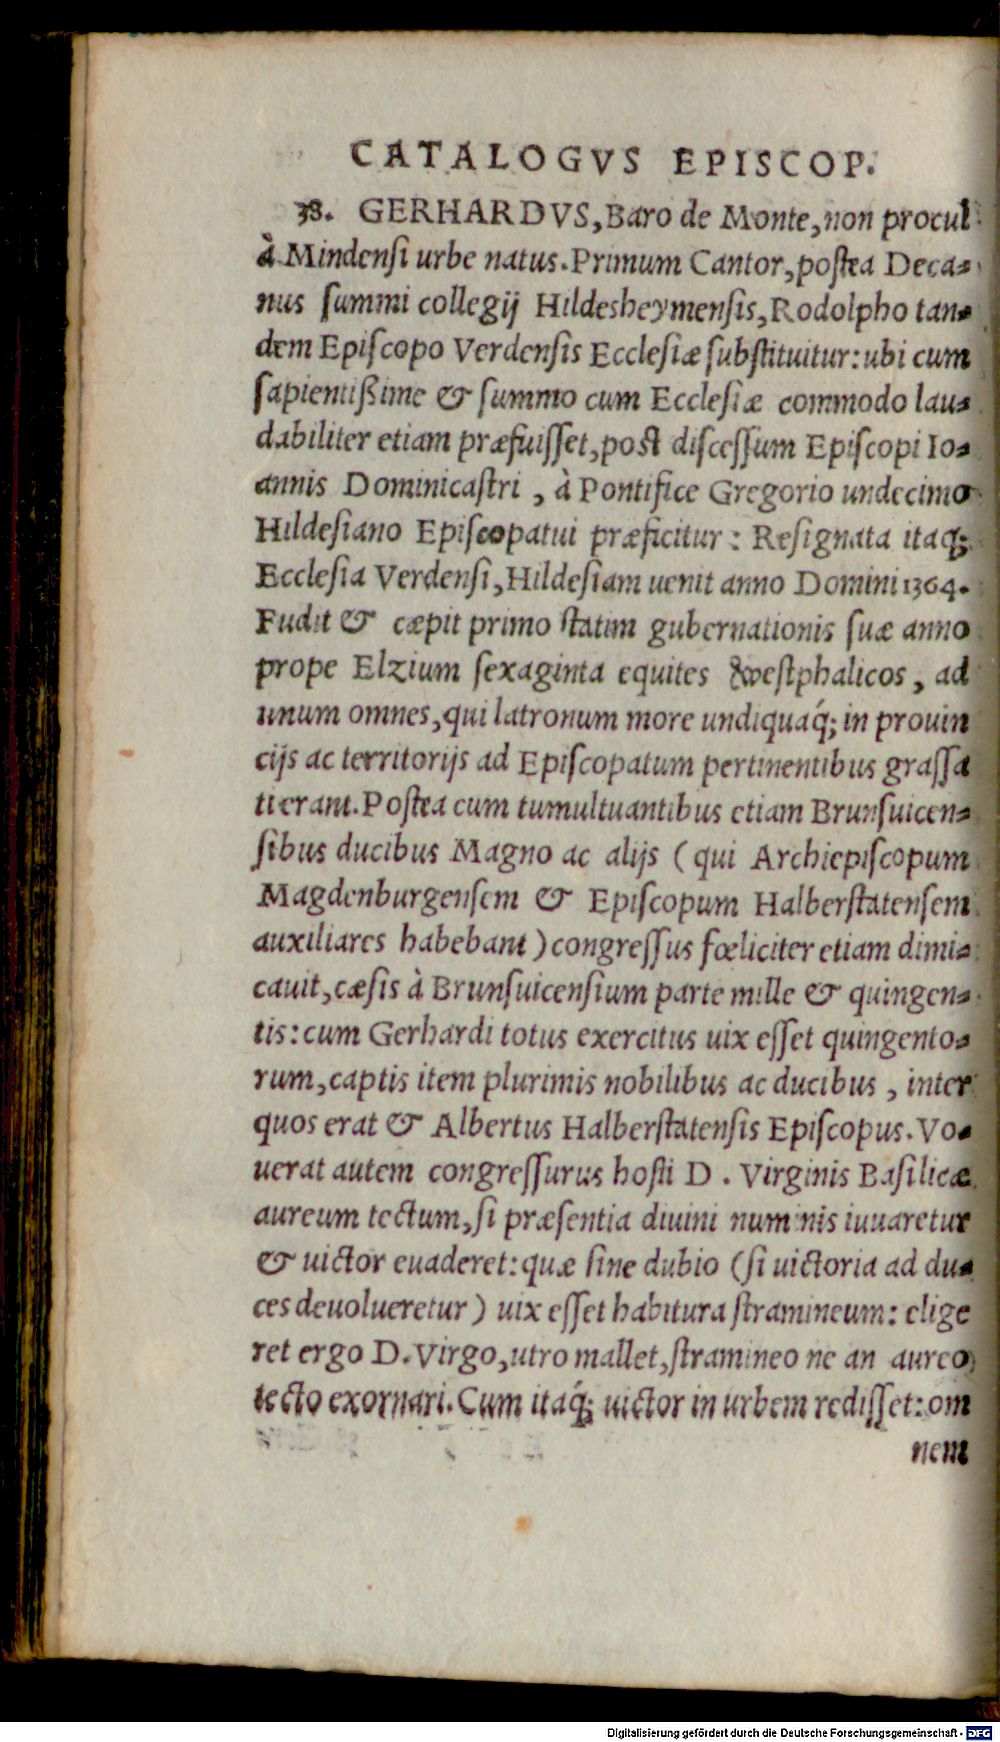 CATALOGVS EPISCOP.
38. GERHARDVS, Baro de Monte, non procul
à Mindenſi urbe natus. Primum Cantor, poſtea Deca-
nus ſummi collegij Hildesheymenſis, Rodolpho tan-
dem Epiſcopo Verdenſis Eccleſiæ ſubſtituitur: ubi cum
ſapientißime & ſummo cum Eccleſiæ commodo lau-
dabiliter etiam præfuiſſet, poſt diſceſſum Epiſcopi Io-
annis Dominicaſtri, à Pontifice Gregorio undecimo
Hildeſiano Epiſcopatui præficitur: Reſignata itaq;
Eccleſia Verdenſi, Hildeſiam uenit anno Domini 1364.
Fudit & cæpit primo ſtatim gubernationis ſuæ anno
prope Elzium ſexaginta equites Weſtphalicos, ad
unum omnes, qui latronum more undiquaq́; in prouin
cijs ac territorijs ad Epiſcopatum pertinentibus graſſa
ti erant. Poſtea cum tumultuantibus etiam Brunſuicen-
ſibus ducibus Magno ac alijs (qui Archiepiſcopum
Magdenburgenſem & Epiſcopum Halberſtatenſem
auxiliares habebant) congreſſus fœliciter etiam dimi-
cauit, cæſis à Brunſuicenſium parte mille & quingen-
tis: cum Gerhardi totus exercitus uix eſſet quingento-
rum, captis item plurimis nobilibus ac ducibus, inter
quos erat & Albertus Halberſtatenſis Epiſcopus. Vo-
uerat autem congreſſurus hoſti D. Virginis Baſilicæ
aureum tectum, ſi præſentia diuini numinis iuuaretur
& uictor euaderet: quæ ſine dubio (ſi uictoria ad du-
ces deuolueretur) uix eſſet habitura ſtramineum: elige
ret ergo D. Virgo, utro mallet, ſtramineo ne an aureo
tecto exornari. Cum itaq́; uictor in urbem rediſſet: om
nem
Digitalisierung gefördert durch die Deutsche Forschungsgemeinschaft - DFG